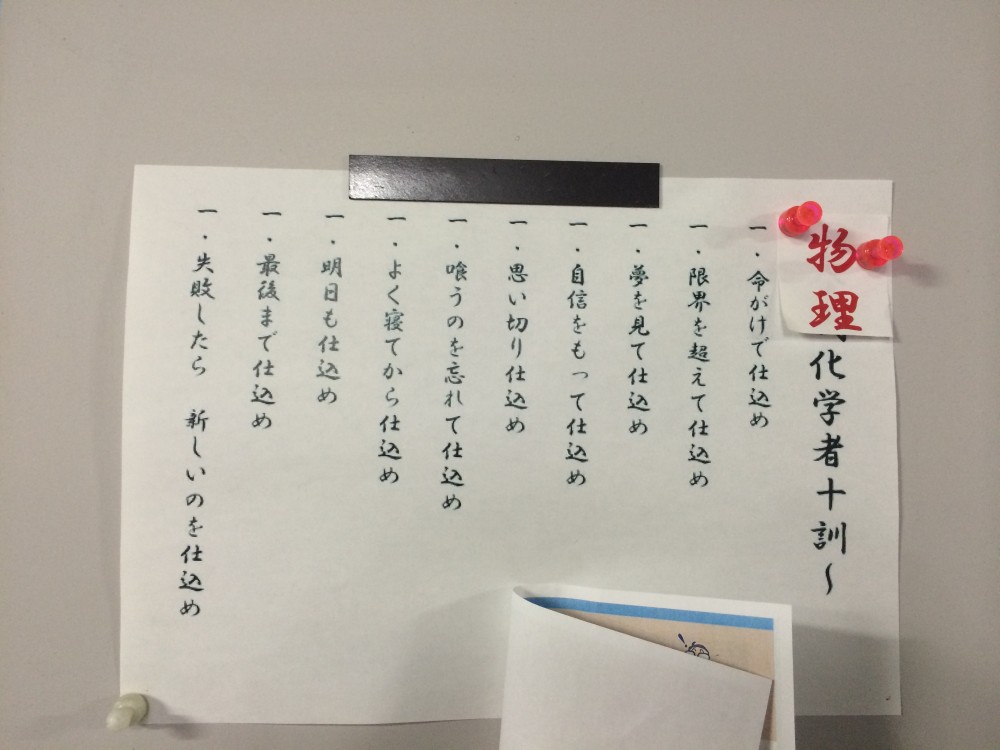 物理
化学者十訓～
一・命がけで仕込め
一・限界を超えて仕込め
一・夢を見て仕込め
一・自信をもって仕込め
一・思い切り仕込め
一・喰うのを忘れて仕込め
一・よく寝てから仕込め
一・明日も仕込め
一・最後まで仕込め
一・失敗したら 新しいのを仕込め